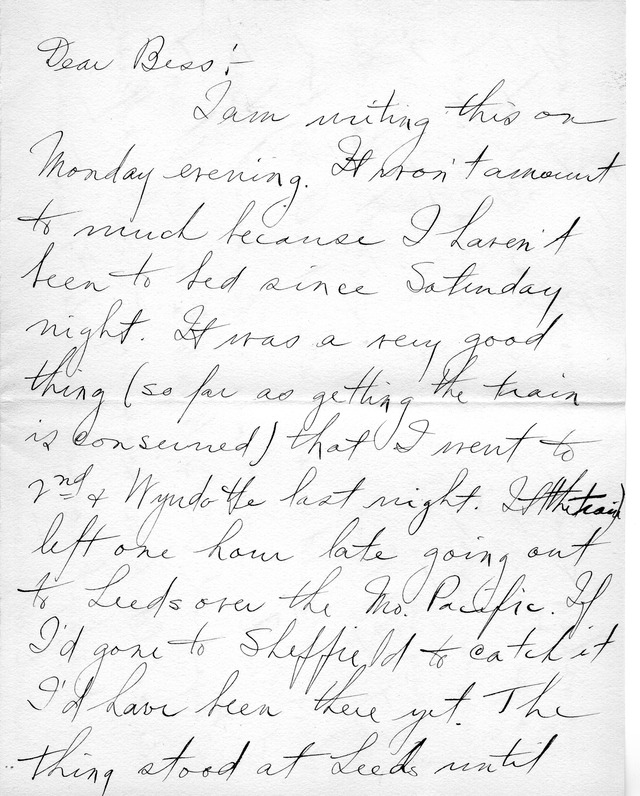 Dear Bess:-
I am writing this on
Monday evening. It won't amount
to much because I haven't
been to bed since Saturday
night. It was a very good
thing (so far as getting the train
is conserned) that I went to
2nd & Wyndotte last night. It (the train)
left one hour late going out
to Leeds over the Mo. Pacific. If
I'd gone to Sheffield to catch it
I'd have been there yet. The
thing stood at Leeds until